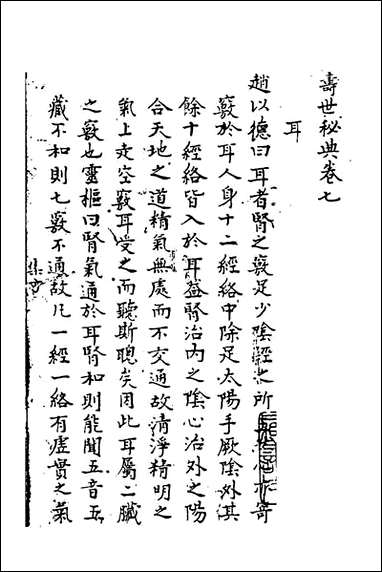 壽世秘典卷七
耳
趙以德曰耳者腎之竅足少陰經之所
寄
竅於耳人身十二經絡中除足太陽手厥陰外其
餘十經絡皆入於耳蓋腎治內之陰心治外之陽
合天地之道精氣無處而不交通故清淨精明之
氣上走空竅耳受之而聽斯聰矣因此耳屬二臟
之竅也靈樞曰腎氣通於耳腎和則能聞五音五
藏不和則七竅不通故凡一經一絡有虛實之氣